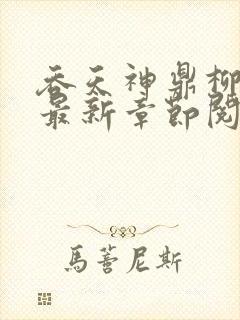 吞天神鼎柳
最新章節閱
馬薺尼斯